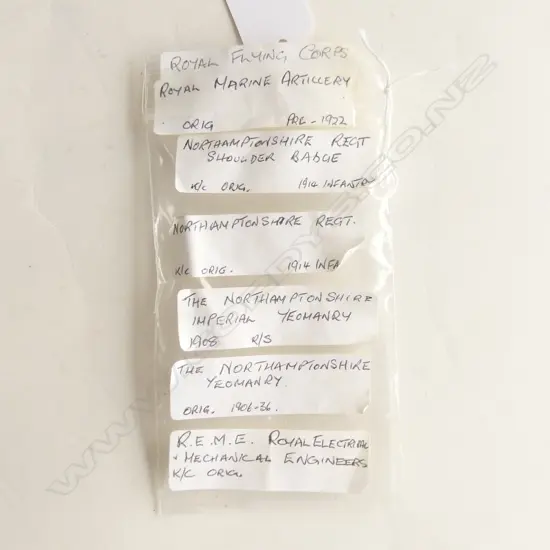 ROYAL FLYING CORPS
ROYAL MARINE ARTILLERY
ORIG PRE-1922
NORTHAMPTONSHIRE REGT
SHOULDER BADGE
K/C ORIG. 1914 INFANTR
NORTHAMPTONSHIRE REGT.
K/C ORIG. 1914 INFA
THE NORTHAMPTONSHIRE
IMPERIAL YEOMANRY
1908 R/S
THE NORTHAMPTONSHIRE
YEOMANRY.
ORIG. 1906-36.
R.E.M.E. ROYAL ELECTRICAL
+ MECHANICAL ENGINEERS
K/C ORIG.